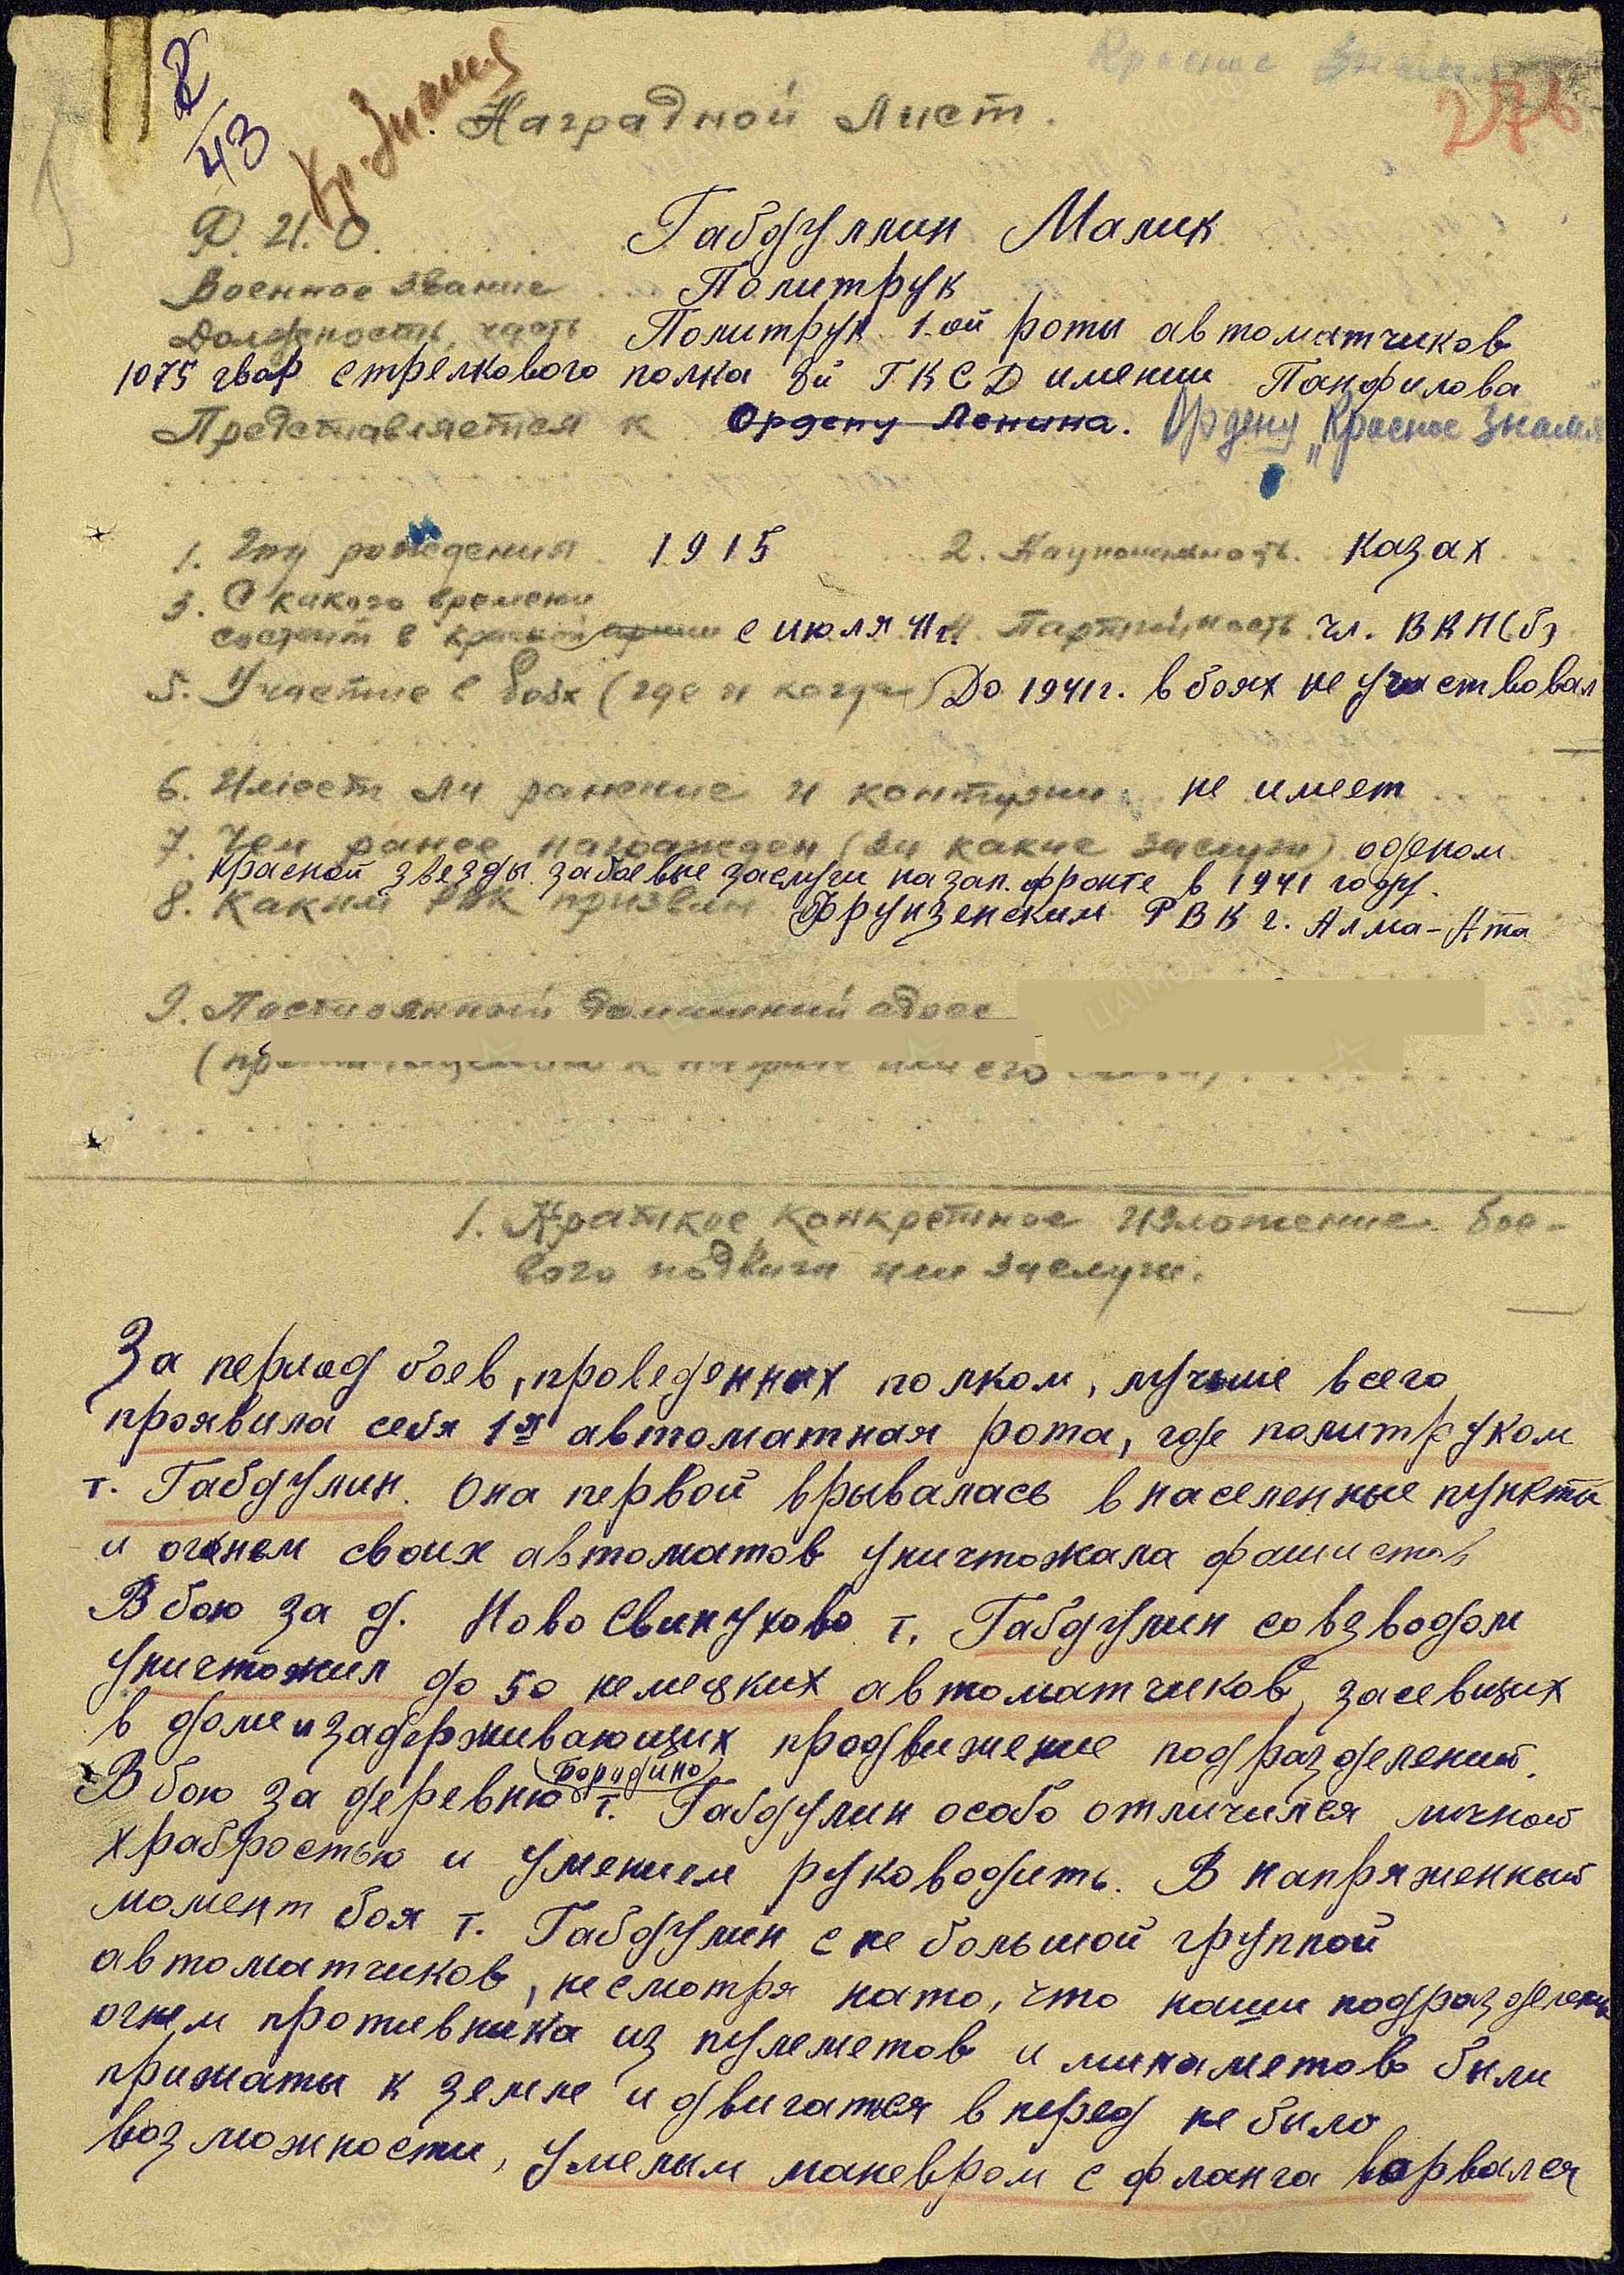 2/43
Кр. Знамя
Красное Знамя
276
Наградной Лист.
Ф. И. О. Габдуллин Малик
Военное звание Политрук
Должность, часть Политрук 1-ой роты автоматчиков
1075 гвар стрелкового полка 8й ГКСД имени Панфилова
Представляется к Ордену Ленина. Ордену „Красное Знамя"
1. Год рождения 1915 2. Национальность казах
3. С какого времени
состоит в красной армии с июля 41г. 4. Партийность чл. ВКП(б)
5. Участие в боях (где и когда) До 1941г. в боях не участвовал
6. Имеет ли ранение и контузии: не имеет
7. Чем ранее награжден (за какие заслуги) оденом
Красной звезды за боевые заслуги на зап. фронте в 1941 году.
8. Каким РВК призван Фрунзенским РВК г. Алма-Ата
9. Постоянный домашний адрес
1. Краткое, конкретное изложение бое-
вого подвига или заслуги.
За период боев, проведенных полком, лучше всего
проявила себя 1я автоматная рота, где политруком
т. Габдулин. Она первой врывалась в населенные пункты
и огнем своих автоматов уничтожала фашистов
В бою за д. Ново Свинухово т. Габдулин со взводом
уничтожил до 50 немецких автоматчиков, засевших
в доме и задерживающих продвижение подразделений.
В бою за деревню Бородино т. Габдулин особо отличился личной
храбростью и умением руководить. В напряженный
момент боя т. Габдулин с не большой группой
автоматчиков, несмотря на то, что наши подразделения
огнем противника из пулеметов и минаметов были
прижаты к земле и двигатся вперед не было
возможности, умелым маневром с фланга ворвался